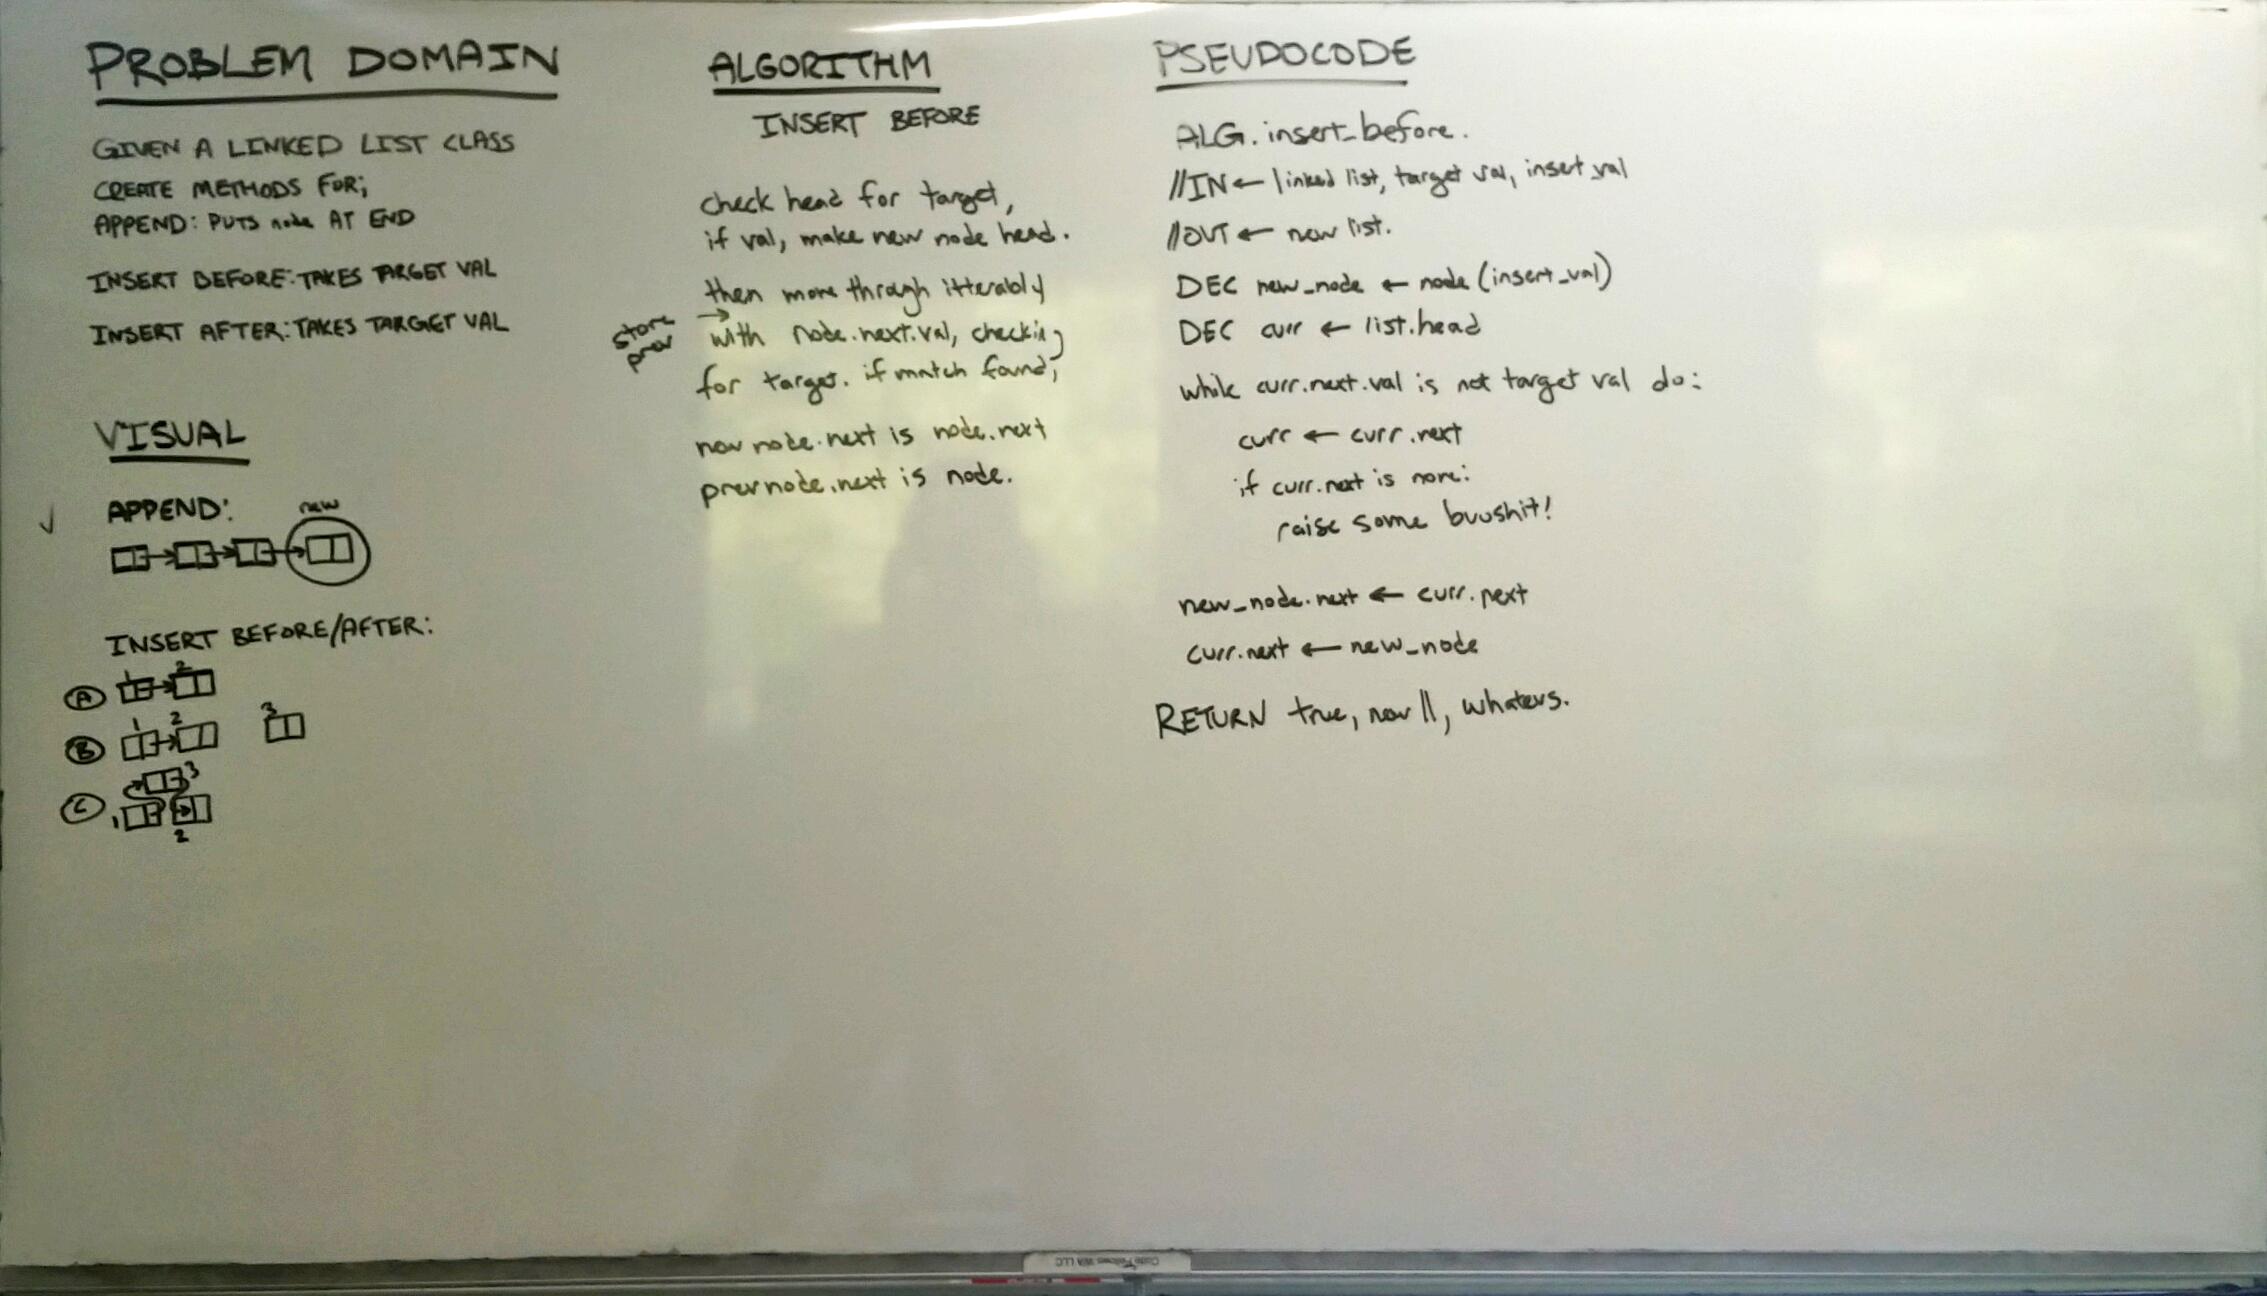 PROBLEM DOMAIN
GIVEN A LINKED LIST CLASS
CREATE METHODS FOR;
APPEND: PUTS node AT END
INSERT BEFORE: TAKES TARGET VAL
INSERT AFTER: TAKES TARGET VAL
VISUAL
✓ APPEND:
new
INSERT BEFORE/AFTER:
A 1 2
B 1 2 3
C 3
1
2
ALGORITHM
INSERT BEFORE
check head for target,
if val, make new node head.
then move through itterably
store prev →
with node.next.val, checking
for target. if match found,
new node.next is node.next
prevnode.next is node.
PSEUDOCODE
ALG. insert_before.
//IN ← linked list, target val, insert_val
//OUT ← new list.
DEC new_node ← node (insert_val)
DEC curr ← list.head
while curr.next.val is not target val do:
curr ← curr.next
if curr.next is none:
raise some buushit!
new_node.next ← curr.next
curr.next ← new_node
RETURN true, new ll, whatevs.
Code Fellows WA LLC